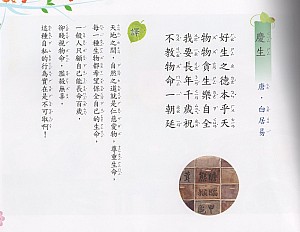 慶生
唐．白居易
好生之德本乎天
物物貪生樂自全
我要長年千歲祝
不教物命一朝延
譯
天地之間，自然之道就是仁慈愛物，尊重生命，
每一種生物都希望保全自己的生命，
一般人只顧自己能長命百歲，
卻賤視物命，濫殺無辜，
這種自私的行為實在是不可取啊！